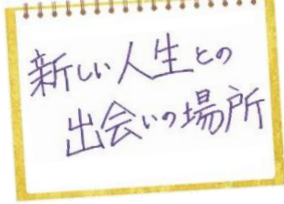 新しい人生との
出会いの場所